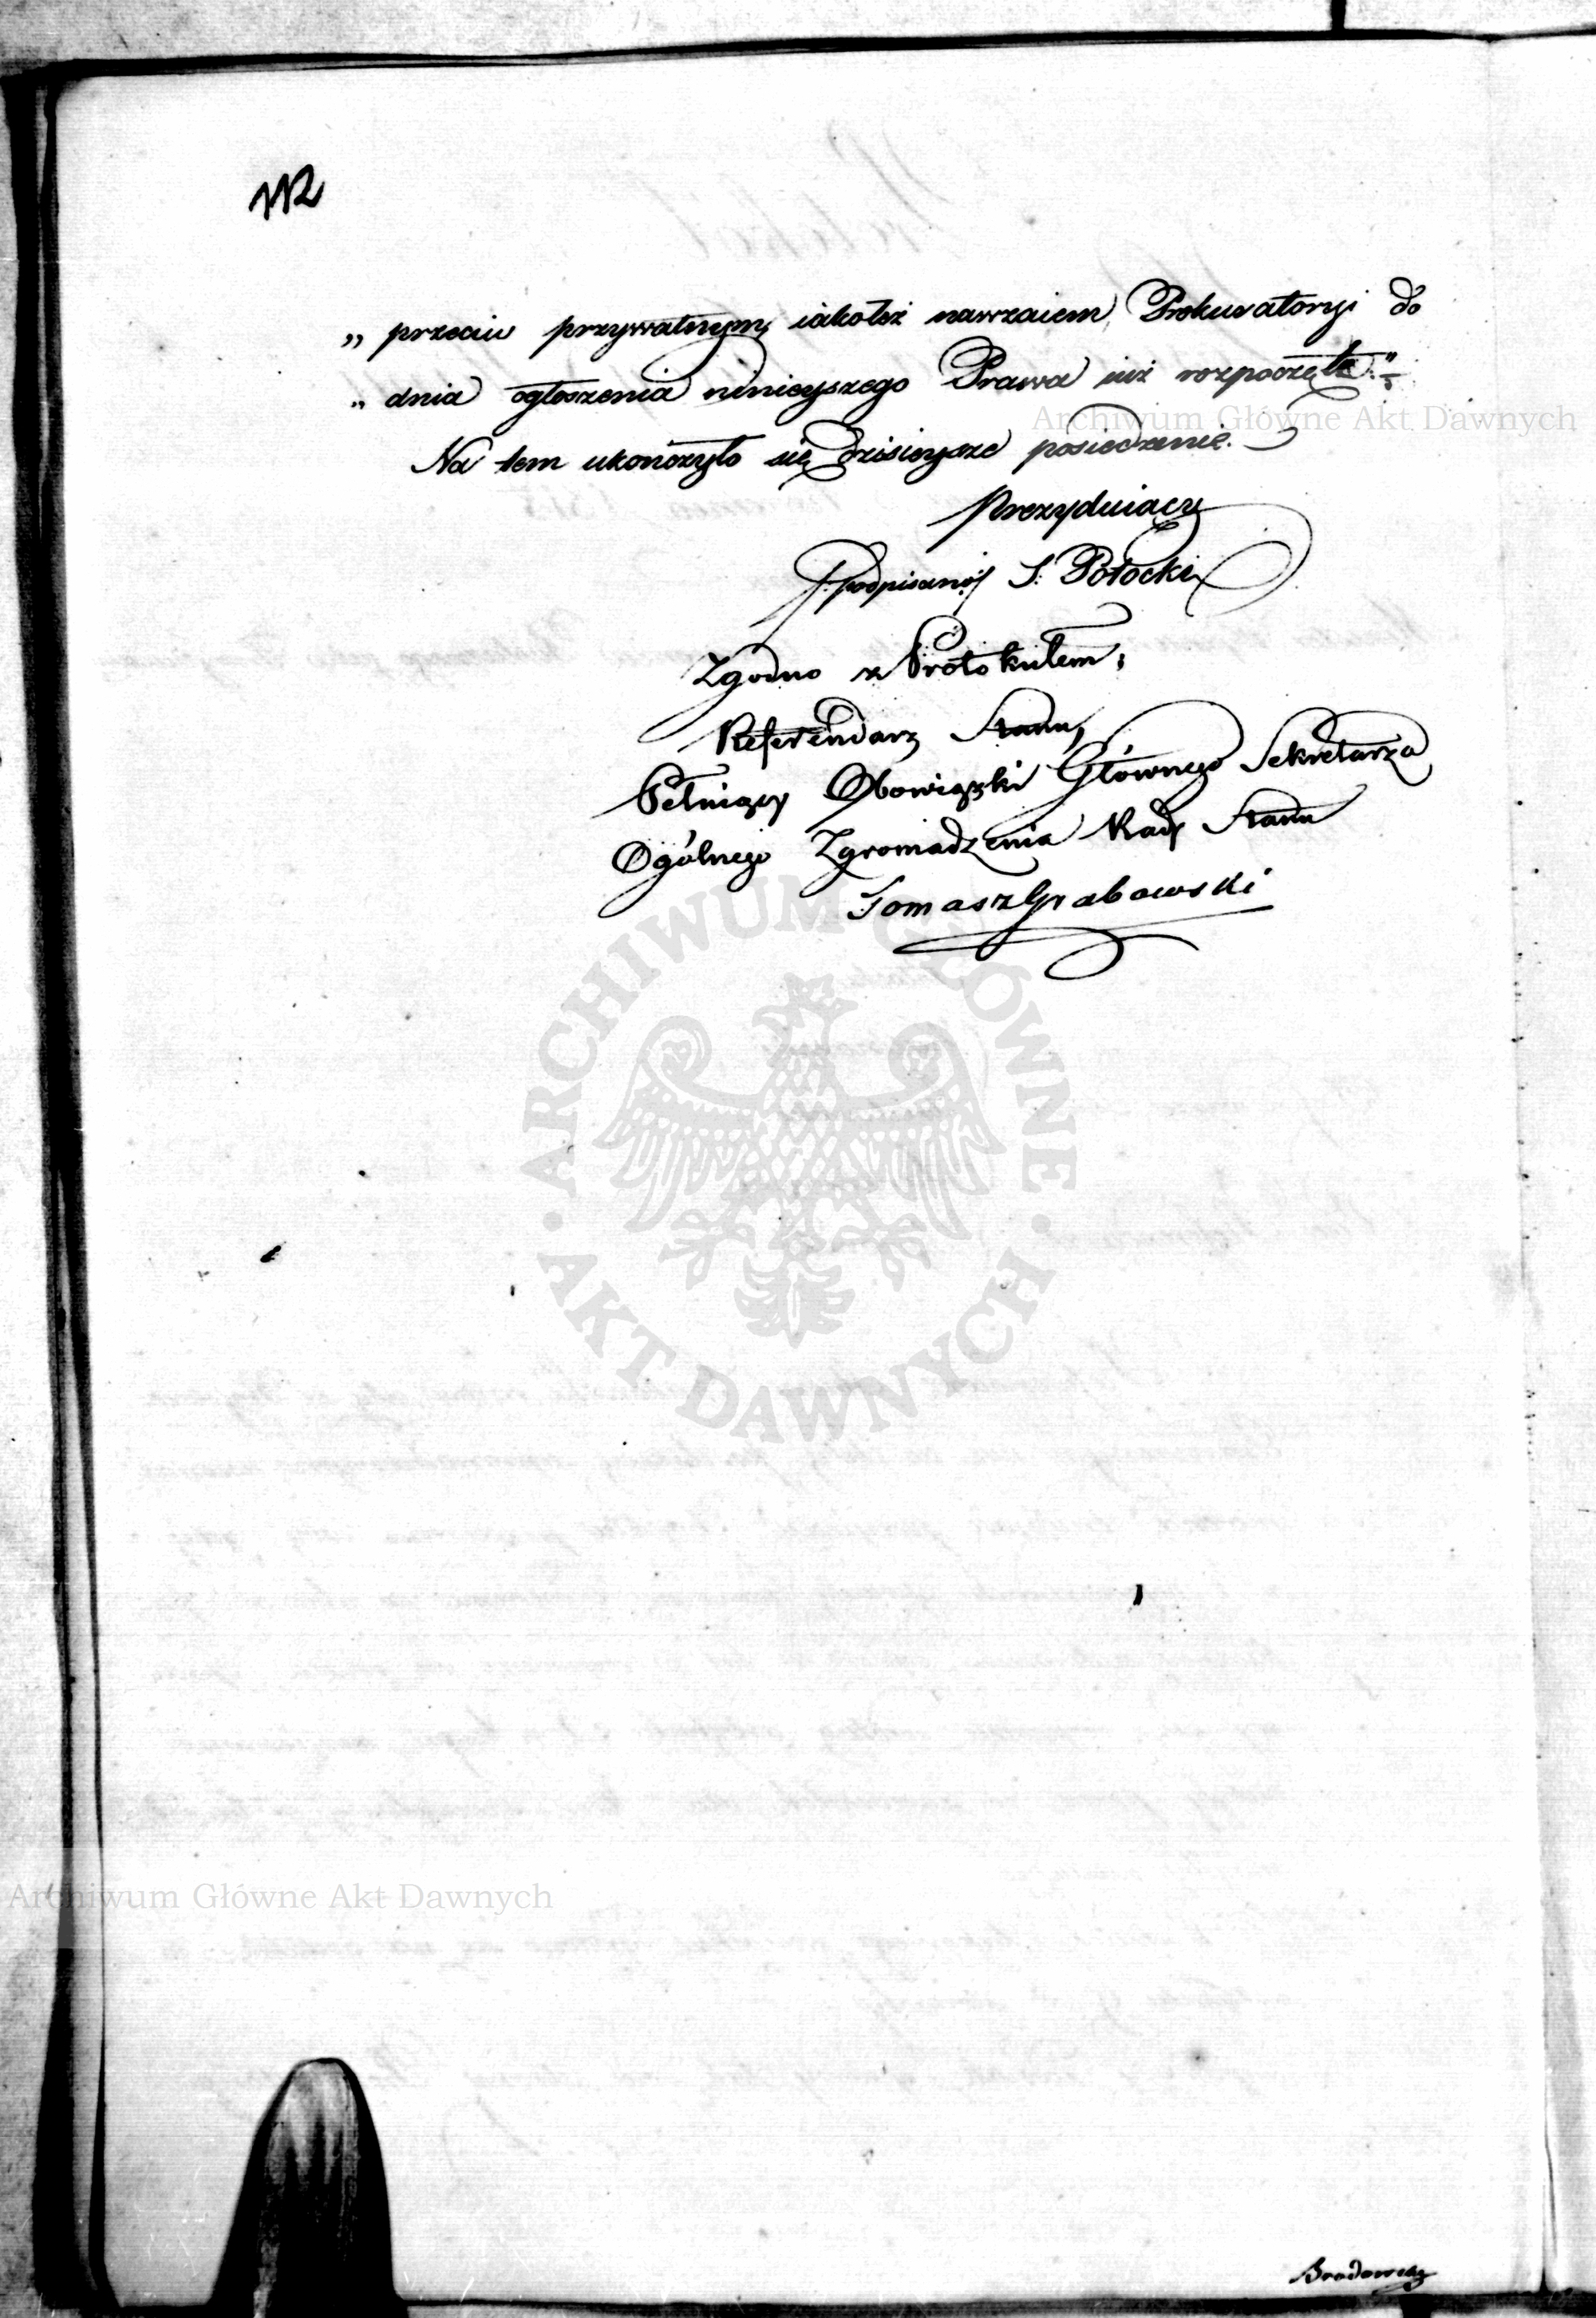 112
„ przeciw prywatnym, iakoteż nawzaiem Prokuratoryi do
„ dnia ogłoszenia ninieyszego Prawa iuż rozpoczęte."
Archiwum Główne Akt Dawnych
Na tem ukończyło się dzisieysze posiedzenie.
Prezyduiący
/:podpisano:/ S. Potocki
Zgodno z Protokułem;
Referendarz Stanu,
Pełniący Obowiązki Głównego Sekretarza
Ogólnego Zgromadzenia Rady Stanu
Tomasz Grabowski
ARCHIWUM GŁÓWNE
AKT DAWNYCH
Archiwum Główne Akt Dawnych